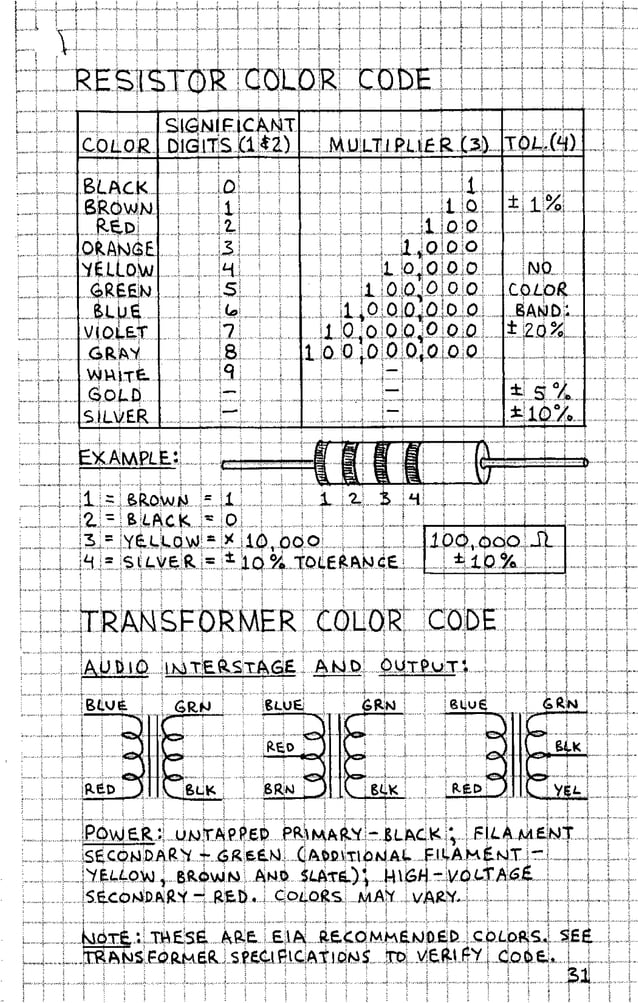 RESISTOR COLOR CODE
COLOR SIGNIFICANT DIGITS (1&2) MULTIPLIER (3) TOL.(4)
BLACK 0 1
BROWN 1 10 ± 1%
RED 2 100
ORANGE 3 1,000
YELLOW 4 10,000 NO
GREEN 5 100,000 COLOR
BLUE 6 1,000,000 BAND:
VIOLET 7 10,000,000 ± 20%
GRAY 8 100,000,000
WHITE 9 –
GOLD – – ± 5%
SILVER – – ± 10%
EXAMPLE:
1 2 3 4
1 = BROWN = 1
2 = BLACK = 0
3 = YELLOW = x 10,000
4 = SILVER = ± 10% TOLERANCE
100,000 Ω
± 10%
TRANSFORMER COLOR CODE
AUDIO INTERSTAGE AND OUTPUT:
BLUE GRN BLUE GRN BLUE GRN
RED BLK
RED BLK BRN BLK RED YEL
POWER: UNTAPPED PRIMARY – BLACK; FILAMENT
SECONDARY – GREEN (ADDITIONAL FILAMENT –
YELLOW, BROWN AND SLATE); HIGH-VOLTAGE
SECONDARY – RED. COLORS MAY VARY.
NOTE: THESE ARE EIA RECOMMENDED COLORS. SEE
TRANSFORMER SPECIFICATIONS TO VERIFY CODE.
31